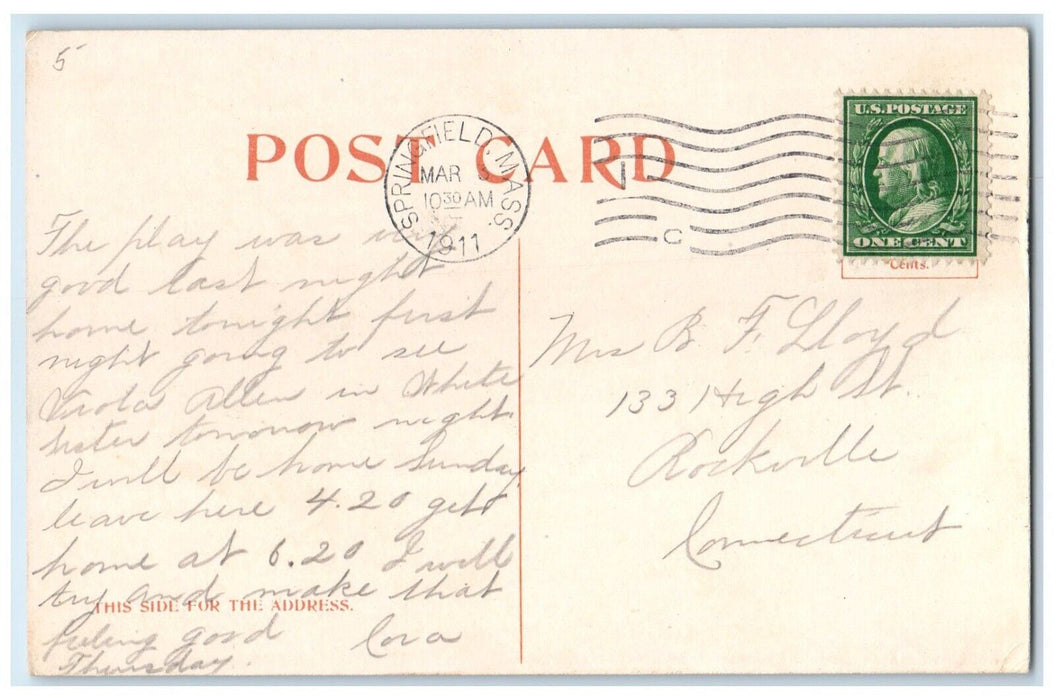 5
POST CARD
SPRINGFIELD, MASS.
MAR
10 30 AM
1911
C
U.S. POSTAGE
ONE CENT
Cents.
The play was very
good last night
home tonight first
night going to see
Viola Allen in White
Sister tomorrow night.
I will be home Sunday
leave here 4.20 get
home at 6.20 I will
try and make that
THIS SIDE FOR THE ADDRESS.
feeling good Cora
Thursday.
Mrs B. F. Lloyd
133 High St.
Rockville
Connecticut